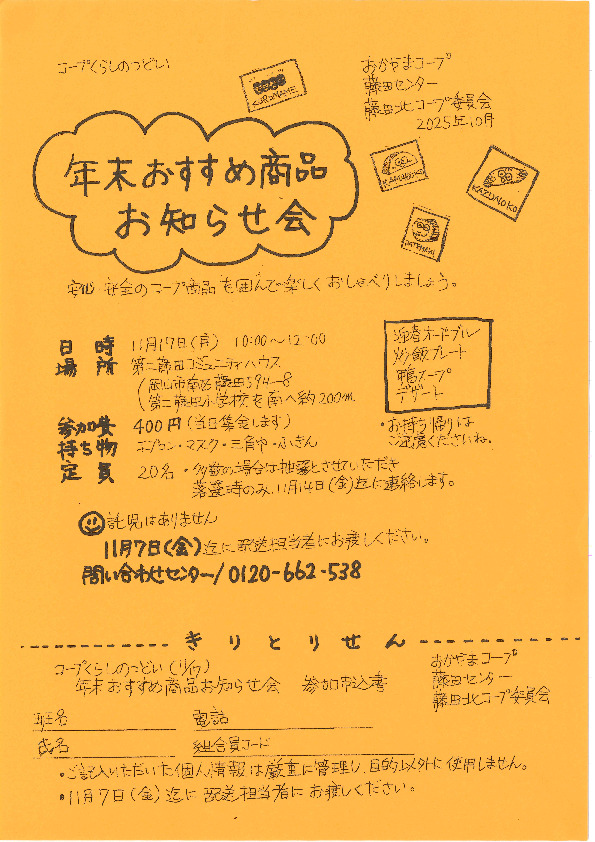 コープくらしのつどい
おかやまコープ
藤田センター
藤田北コープ委員会
2025年10月
KUROMAME
KAZUNOKO
DATEMAKI
年末おすすめ商品
お知らせ会
安心・安全のコープ商品を囲んで楽しくおしゃべりしましょう。
日時 11月17日(月) 10:00〜12:00
場所 第二藤田コミュニティハウス
(岡山市南区藤田594-8
第二藤田小学校を南へ約200m)
参加費 400円(当日集金します)
持ち物 エプロン・マスク・三角巾・ふきん
定員 20名・多数の場合は抽選とさせていただき
落選時のみ、11月14日(金)迄に連絡します。
迎春オードブル
炒飯プレート
鴨スープ
デザート
・お持ち帰りは
ご遠慮くださいね。
託児はありません
11月7日(金)迄に配送担当者にお渡しください。
問い合わせセンター/0120-662-538
きりとりせん
コープくらしのつどい(11/17)
年末おすすめ商品お知らせ会 参加申込書
おかやまコープ
藤田センター
藤田北コープ委員会
班名 電話
氏名 組合員コード
・ご記入いただいた個人情報は厳重に管理し、目的以外に使用しません。
・11月7日(金)迄に配送担当者にお渡しください。